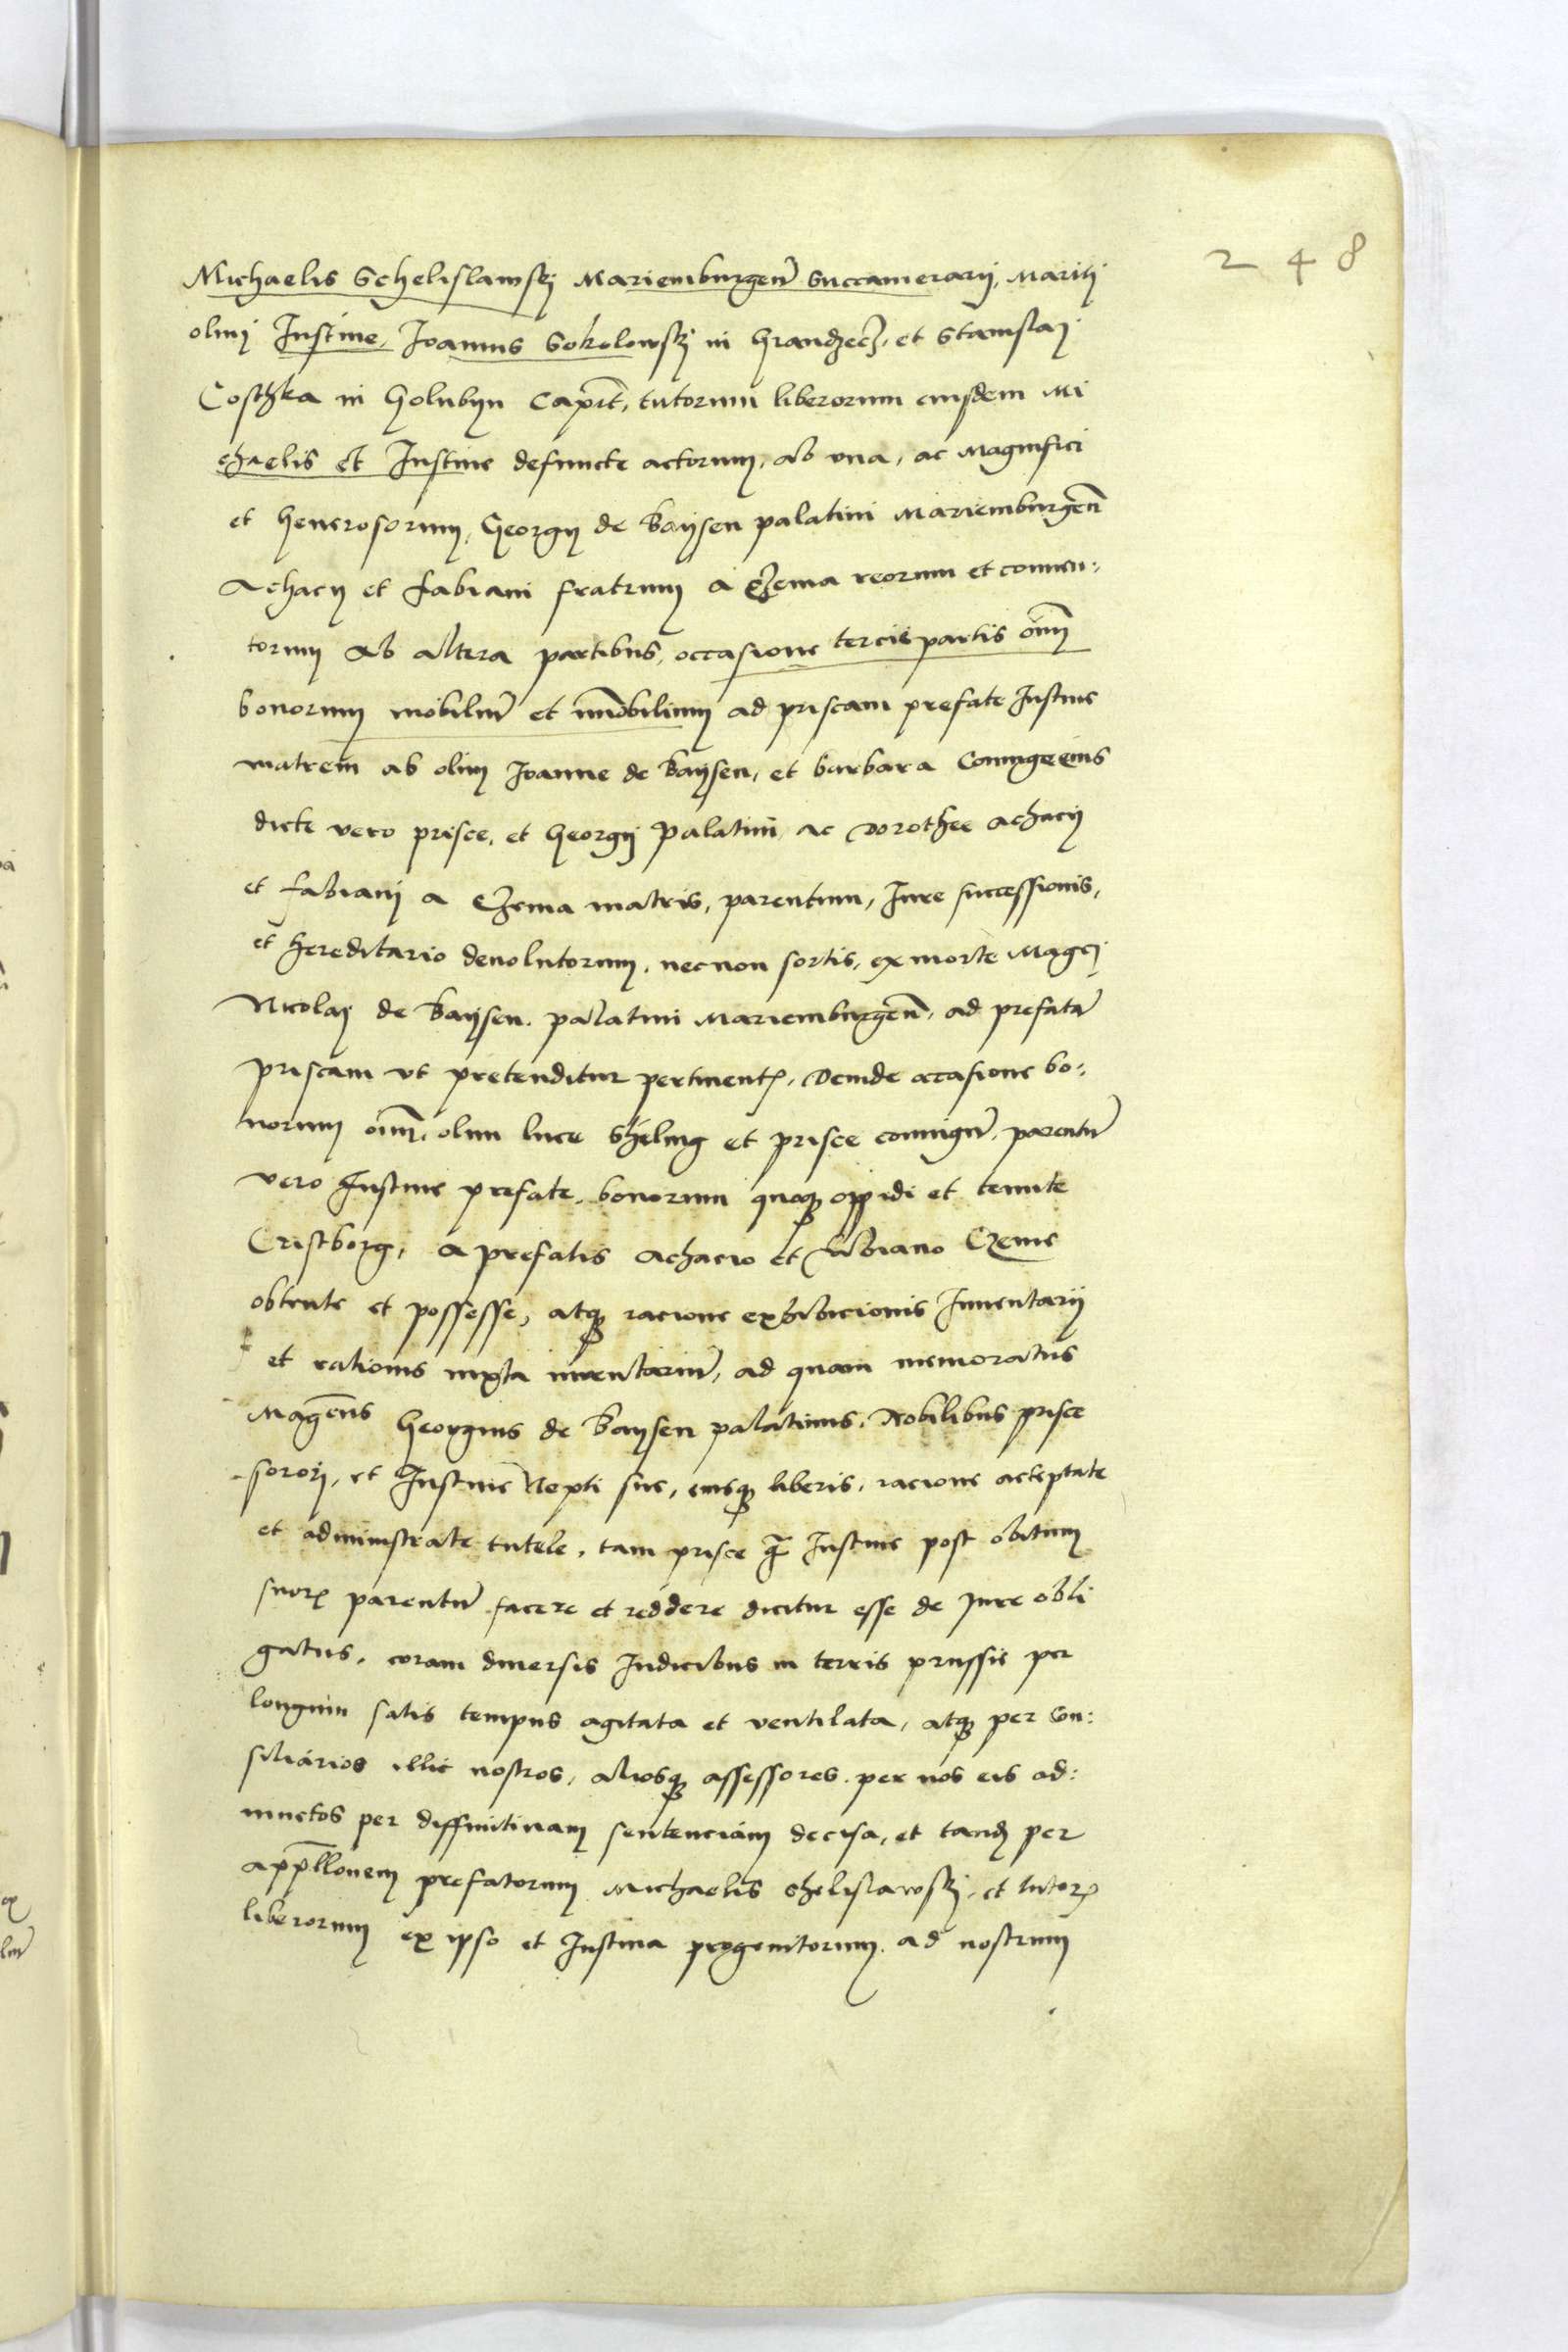 248
Michaelis Schelislawskj Mariemburgen̄ Succamerarij, Maritj
olim Justine, Joannis Sokolowskj in Grandzecz, et Stanislaj
Coschka in Golubyn Capit̄, tutorum liberorum eiusdem Mi
chaelis et Justine defuncte actorum, ab una, ac Magnifici
et generosorum, Georgij de Baysen palatini Mariemburgen̄
Achacij et Fabiani fratrum a Czema reorum et conuen:
torum ab altera partibus, occasione tercie partis oīm
bonorum mobiliū et im̄obilium ad priscam prefate Justine
matrem ab olim Joanne de Baysen, et barbara Coniuge eius
dicte vero prisce, et Georgij palatini, ac Dorothee Achacij
et Fabianj a Czema matris, parentum, Jure successionis,
et hereditario deuolutorum, necnon sortis, ex morte Magcj
Nicolaj de Baysen palatini Mariemburgen̄, ad prefatā
priscam ut pretenditur pertinentꝭ, Deinde occasione bo:
norum oīm, olim luce Sheling et prisce coniugū, parentū
vero Justine prefate, bonorum quoqꝫ oppidi et tenute
Cristborg, a prefatis Achacio et Fabiano Czeme
obtente et possesse, atqꝫ racione exhibicionis Inuentarij
et rationis iuxta inuentariū, ad quam memoratus
Magcus Georgius de Baysen palatinus, Nobilibus prisce
sorori, et Justine Nepti sue, eiusqꝫ liberis, racione acceptate
et administrate tutele, tam prisce q̄ Justine post obitum
suorꝝ parentū facere et reddere dicitur esse de Jure obli
gatus, coram diuersis Judicibus in terris prussie per
longum satis tempus agitata et ventilata, atqꝫ per Con:
siliarios illic nostros, aliosqꝫ assessores per nos eis ad:
iunctos per diffinitiuam sentenciam decisa, et tandꝫ per
appellōnem prefatorum Michaelis Shelislawskj, et tutorꝝ
liberorum ex ipso et Justina progenitorum ad nostrum